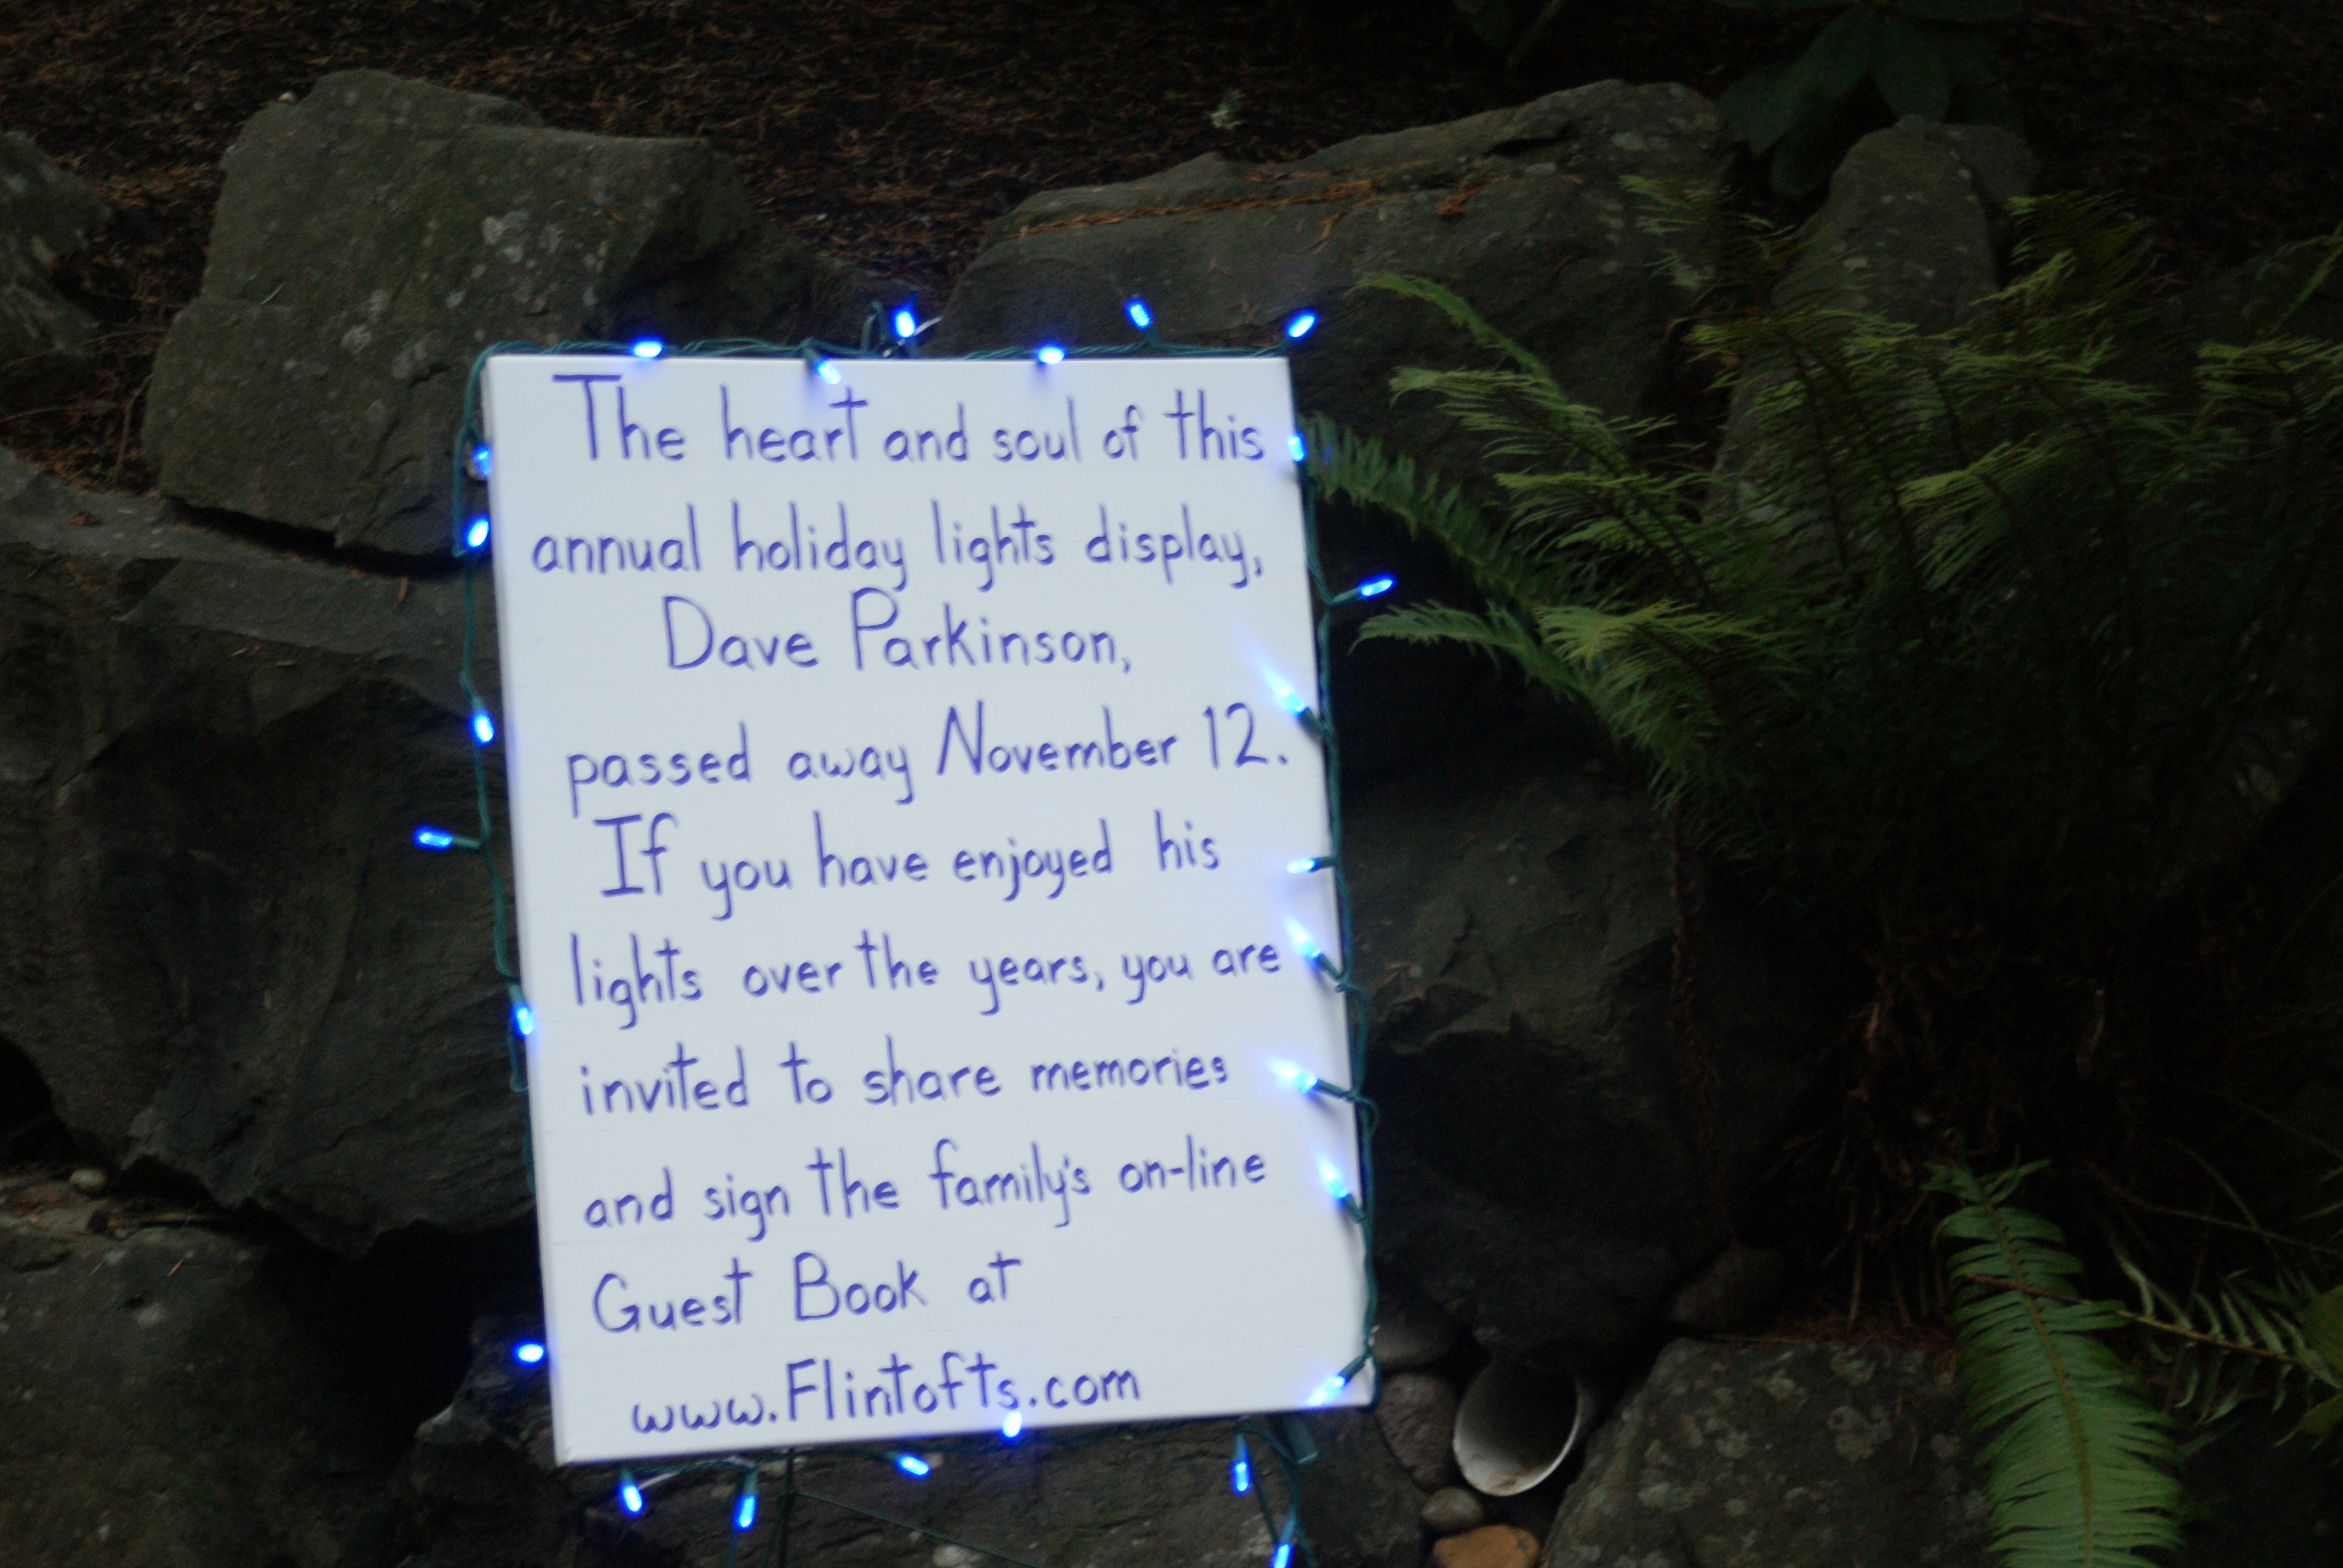 The heart and soul of this
annual holiday lights display,
Dave Parkinson,
passed away November 12.
If you have enjoyed his
lights over the years, you are
invited to share memories
and sign the family's on-line
Guest Book at
www.Flintofts.com